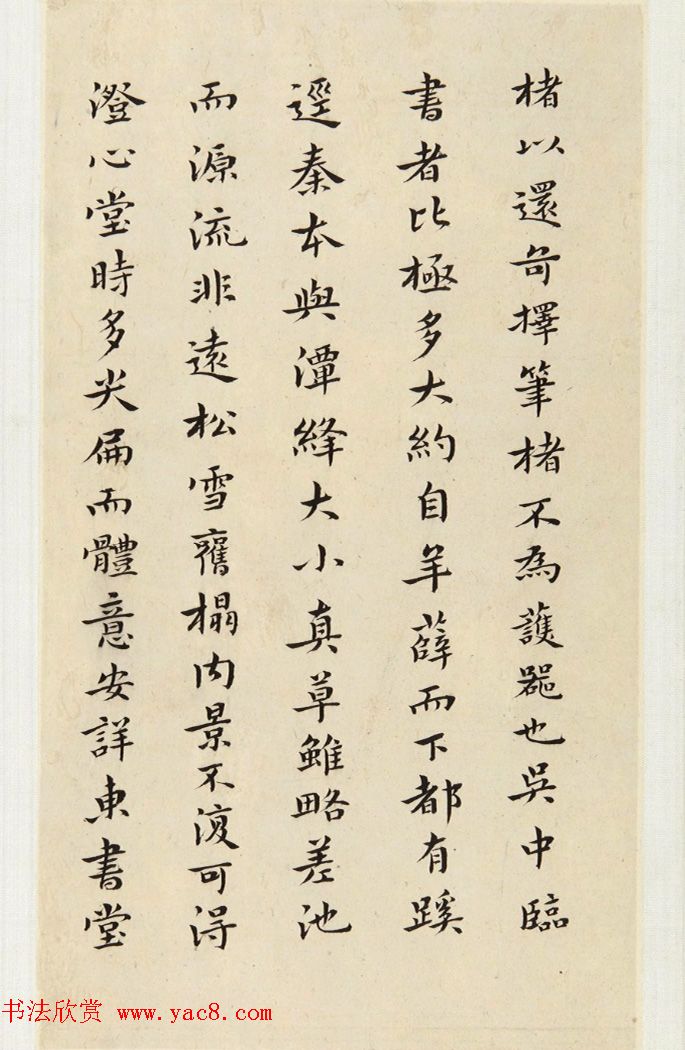 楮以還奇擇筆楮不為護器也吳中臨
書者比極多大約自羊薛而下都有蹊
逕秦本與潭絳大小真草雖略差池
而源流非遠松雪舊榻内景不復可得
澄心堂時多尖扁而體意安詳東書堂
书法欣赏 www.yac8.com